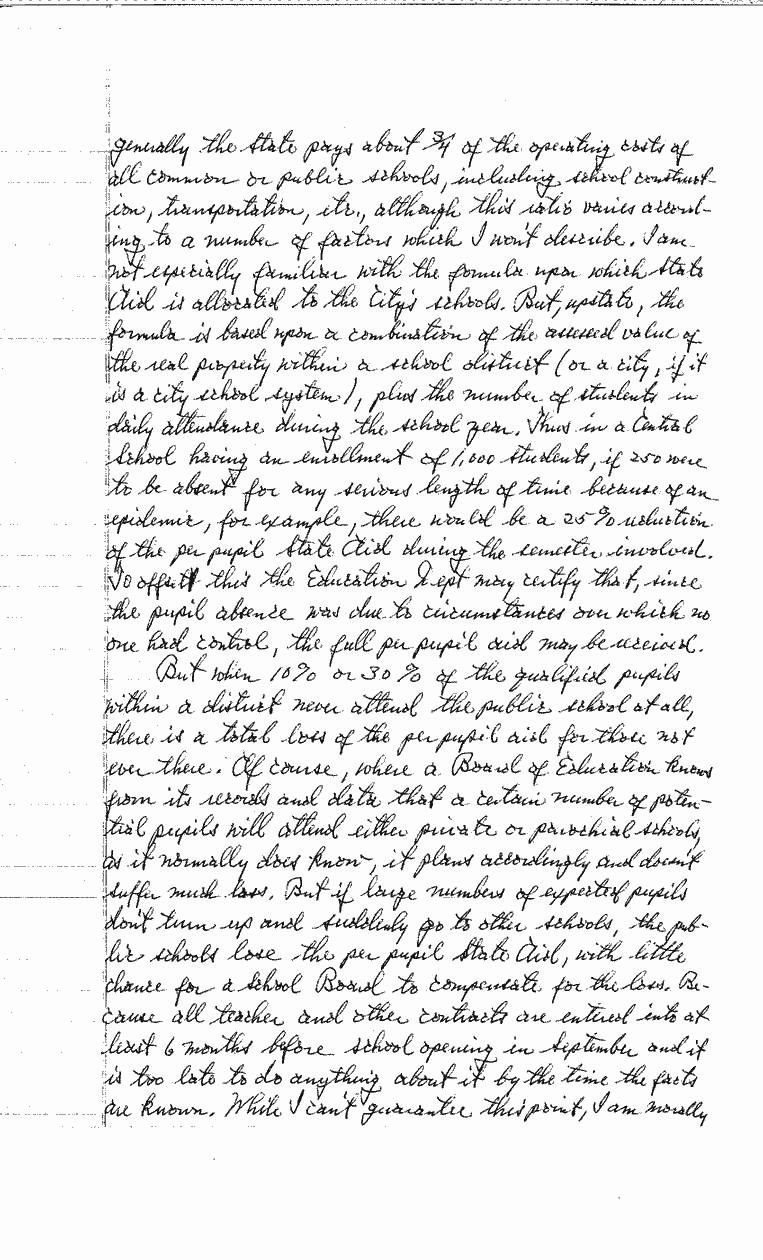 generally the State pays about 3/4 of the operating costs of
all common or public schools, including school construct-
ion, transportation, etc., although this ratio varies accord-
ing to a number of factors which I won't describe. I am
not especially familiar with the formula upon which State
Aid is allocated to the City's schools. But, upstate, the
formula is based upon a combination of the assessed value of
the real property within a school district (or a city, if it
is a city school system), plus the number of students in
daily attendance during the school year. Thus in a Central
School having an enrollment of 1,000 students, if 250 were
to be absent for any serious length of time because of an
epidemic, for example, there would be a 25% reduction
of the per pupil State Aid during the semester involved.
To offset this the Education Dept may certify that, since
the pupil absence was due to circumstances over which no
one had control, the full per pupil aid may be received.
But when 10% or 30% of the qualified pupils
within a district never attend the public school at all,
there is a total loss of the per pupil aid for those not
ever there. Of course, where a Board of Education knows
from its records and data that a certain number of poten-
tial pupils will attend either private or parochial schools,
as it normally does know, it plans accordingly and doesn't
suffer much loss. But if large numbers of expected pupils
don't turn up and suddenly go to other schools, the pub-
lic schools lose the per pupil State Aid, with little
chance for a School Board to compensate for the loss. Be-
cause all teacher and other contracts are entered into at
least 6 months before school opening in September and it
is too late to do anything about it by the time the facts
are known. While I can't guarantee this point, I am morally